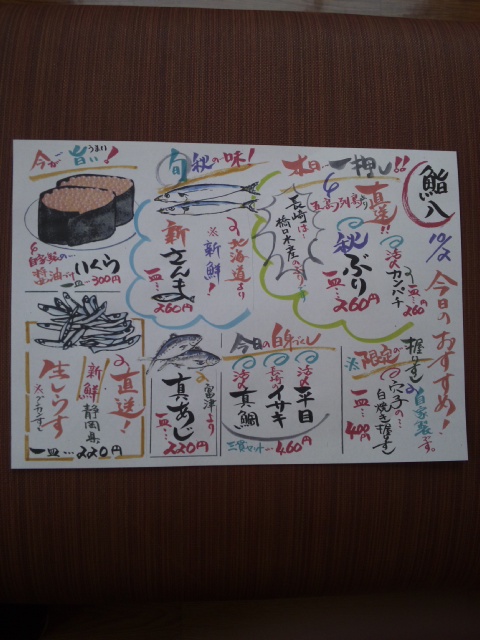 鮨八
10/2
今日のおすすめ！
本日一押し!!
五島列島より
直送!!
秋ぶり
一皿…260円
活〆
カンパチ
一皿…260
長崎は
橋口水産の
旬 秋の味！
北海道より
※新鮮！
新さんま
一皿…260円
今が旨い！
うまい
自家製の
醤油づけ
いくら
一皿…300円
限定の…
握りずし
※穴子の…
白焼き握りずし
自家製です。
一皿…400円
今日の白身づくし
活〆
平目
イサキ
活〆
真鯛
三貫セット…460円
富津より
真あじ
一皿…220円
直送！
新鮮 静岡県
生しらす
一皿…220円